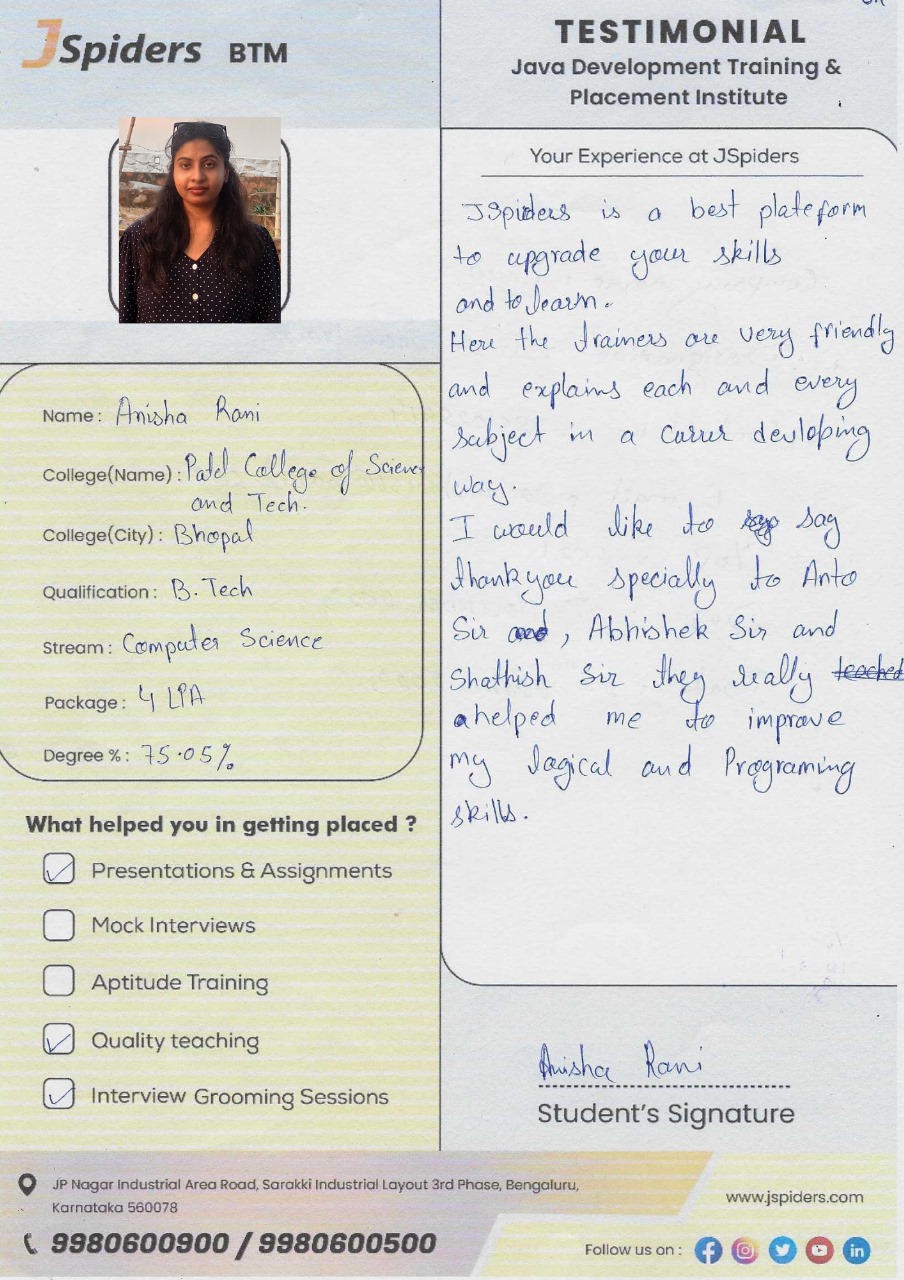 JSpiders BTM
TESTIMONIAL
Java Development Training &
Placement Institute
Your Experience at JSpiders
JSpiders is a best plateform
to upgrade your skills
and to learn.
Here the trainers are very friendly
and explains each and every
subject in a carrer devloping
way.
I would like to say
thankyou specially to Anto
Sir and, Abhishek Sir and
Shathish Sir they really teached
helped me to improve
my logical and Programing
skills.
Name : Anisha Rani
College(Name) : Patel College of Science
and Tech.
College(City) : Bhopal
Qualification : B. Tech
Stream : Computer Science
Package : 4 LPA
Degree % : 75.05%
What helped you in getting placed ?
Presentations & Assignments
Mock Interviews
Aptitude Training
Quality teaching
Interview Grooming Sessions
Anisha Rani
Student's Signature
JP Nagar Industrial Area Road, Sarakki Industrial Layout 3rd Phase, Bengaluru,
Karnataka 560078
9980600900 / 9980600500
www.jspiders.com
Follow us on :